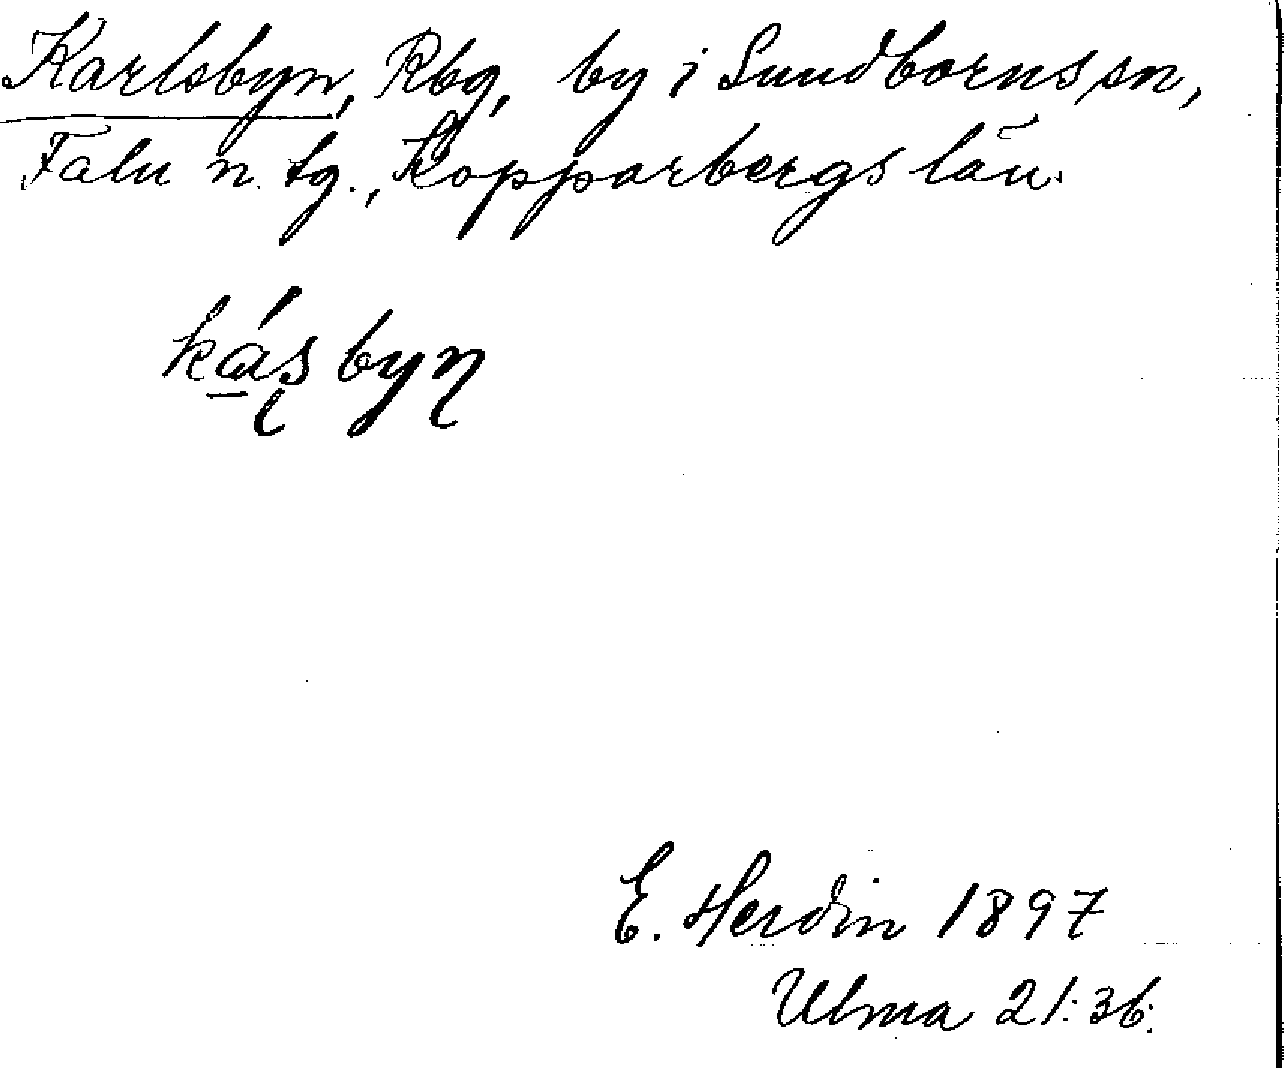 Karlsbyn, Rbg, by i Sundborns sn,
Falu n. tg., Kopparbergs län.
ká̱ʂbyɳ
E. Herdin 1897
Ulma 21:36.